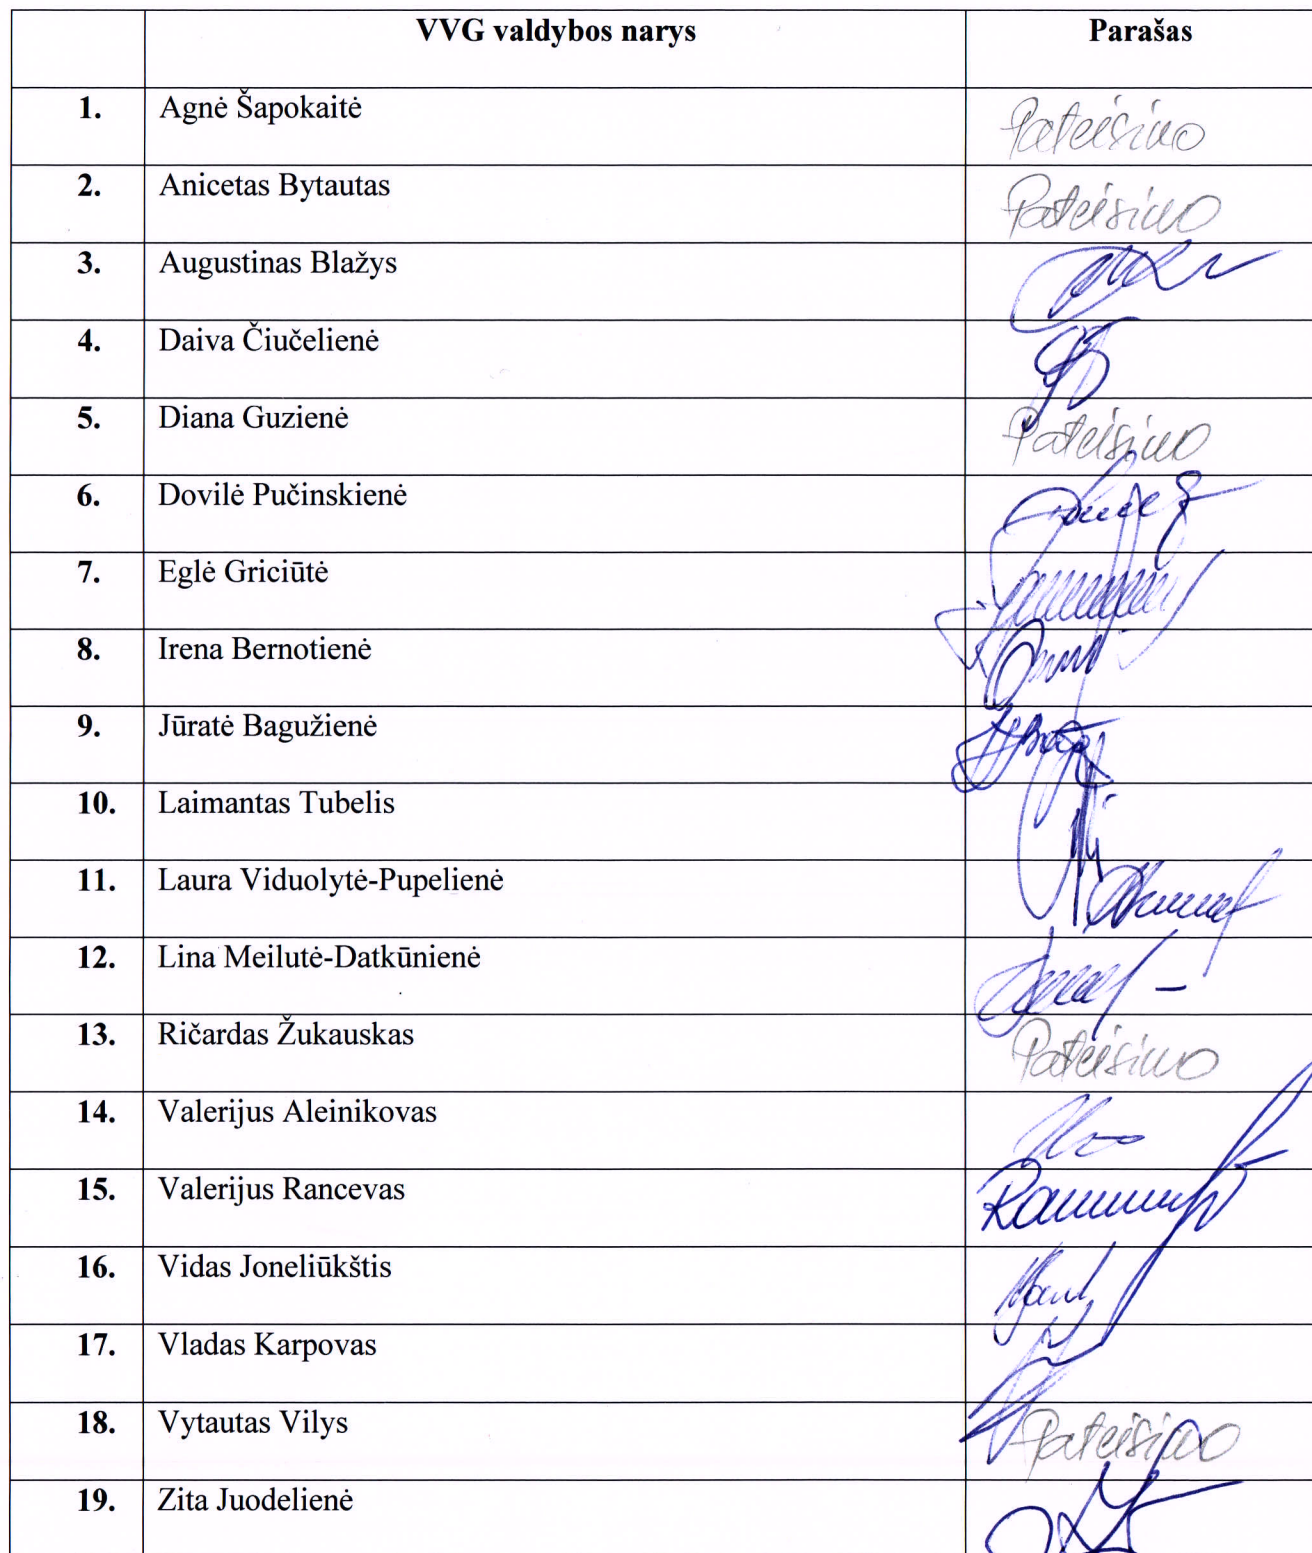 VVG valdybos narys Parašas
1. Agnė Šapokaitė Pateisino
2. Anicetas Bytautas Pateisino
3. Augustinas Blažys
4. Daiva Čiučelienė
5. Diana Guzienė Pateisino
6. Dovilė Pučinskienė
7. Eglė Griciūtė
8. Irena Bernotienė
9. Jūratė Bagužienė
10. Laimantas Tubelis
11. Laura Viduolytė-Pupelienė
12. Lina Meilutė-Datkūnienė
13. Ričardas Žukauskas Pateisino
14. Valerijus Aleinikovas
15. Valerijus Rancevas
16. Vidas Joneliūkštis
17. Vladas Karpovas
18. Vytautas Vilys Pateisino
19. Zita Juodelienė